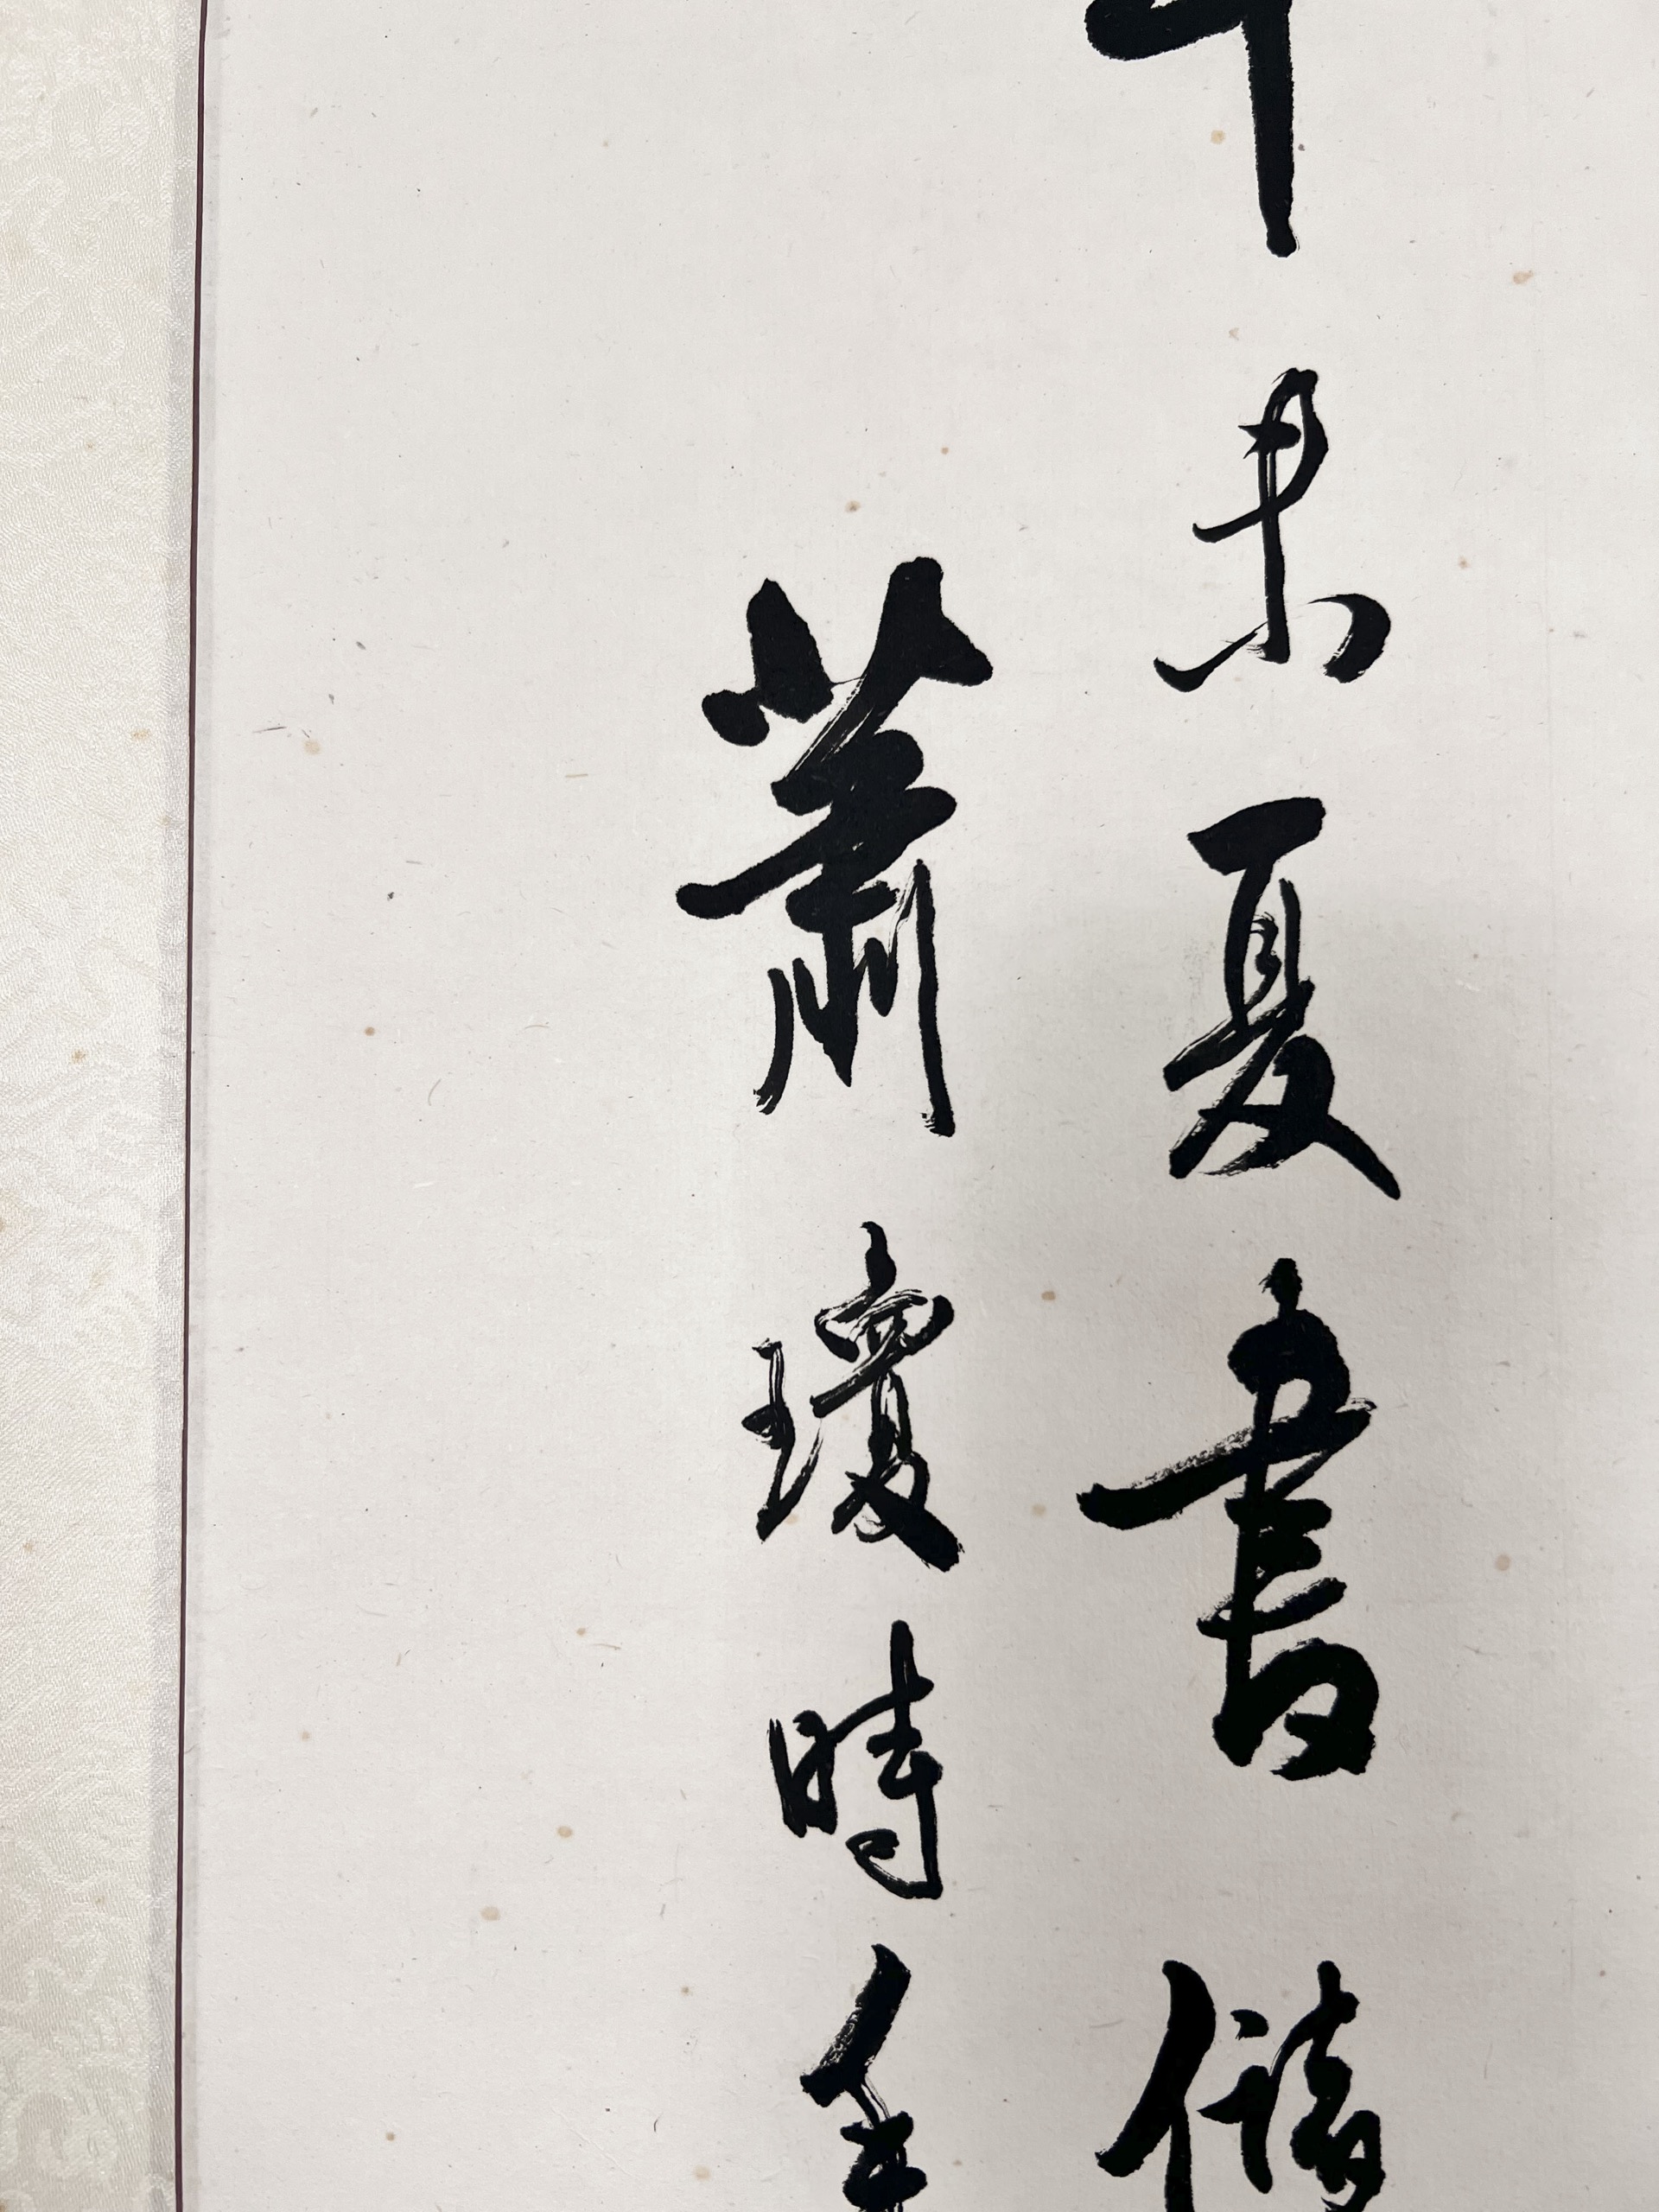 未夏書儲
蕭瓊時年